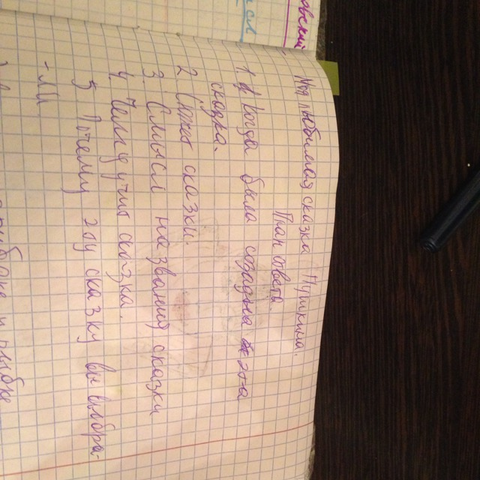 Моя любимая сказка Пушкина.
План ответа.
1 Когда была создана эта
сказка.
2 Сюжет сказки.
3 Смысл названия сказки
4 Чему учит сказка.
5 Почему эту сказку вы выбра-
-ли
рыбаке и рыбке